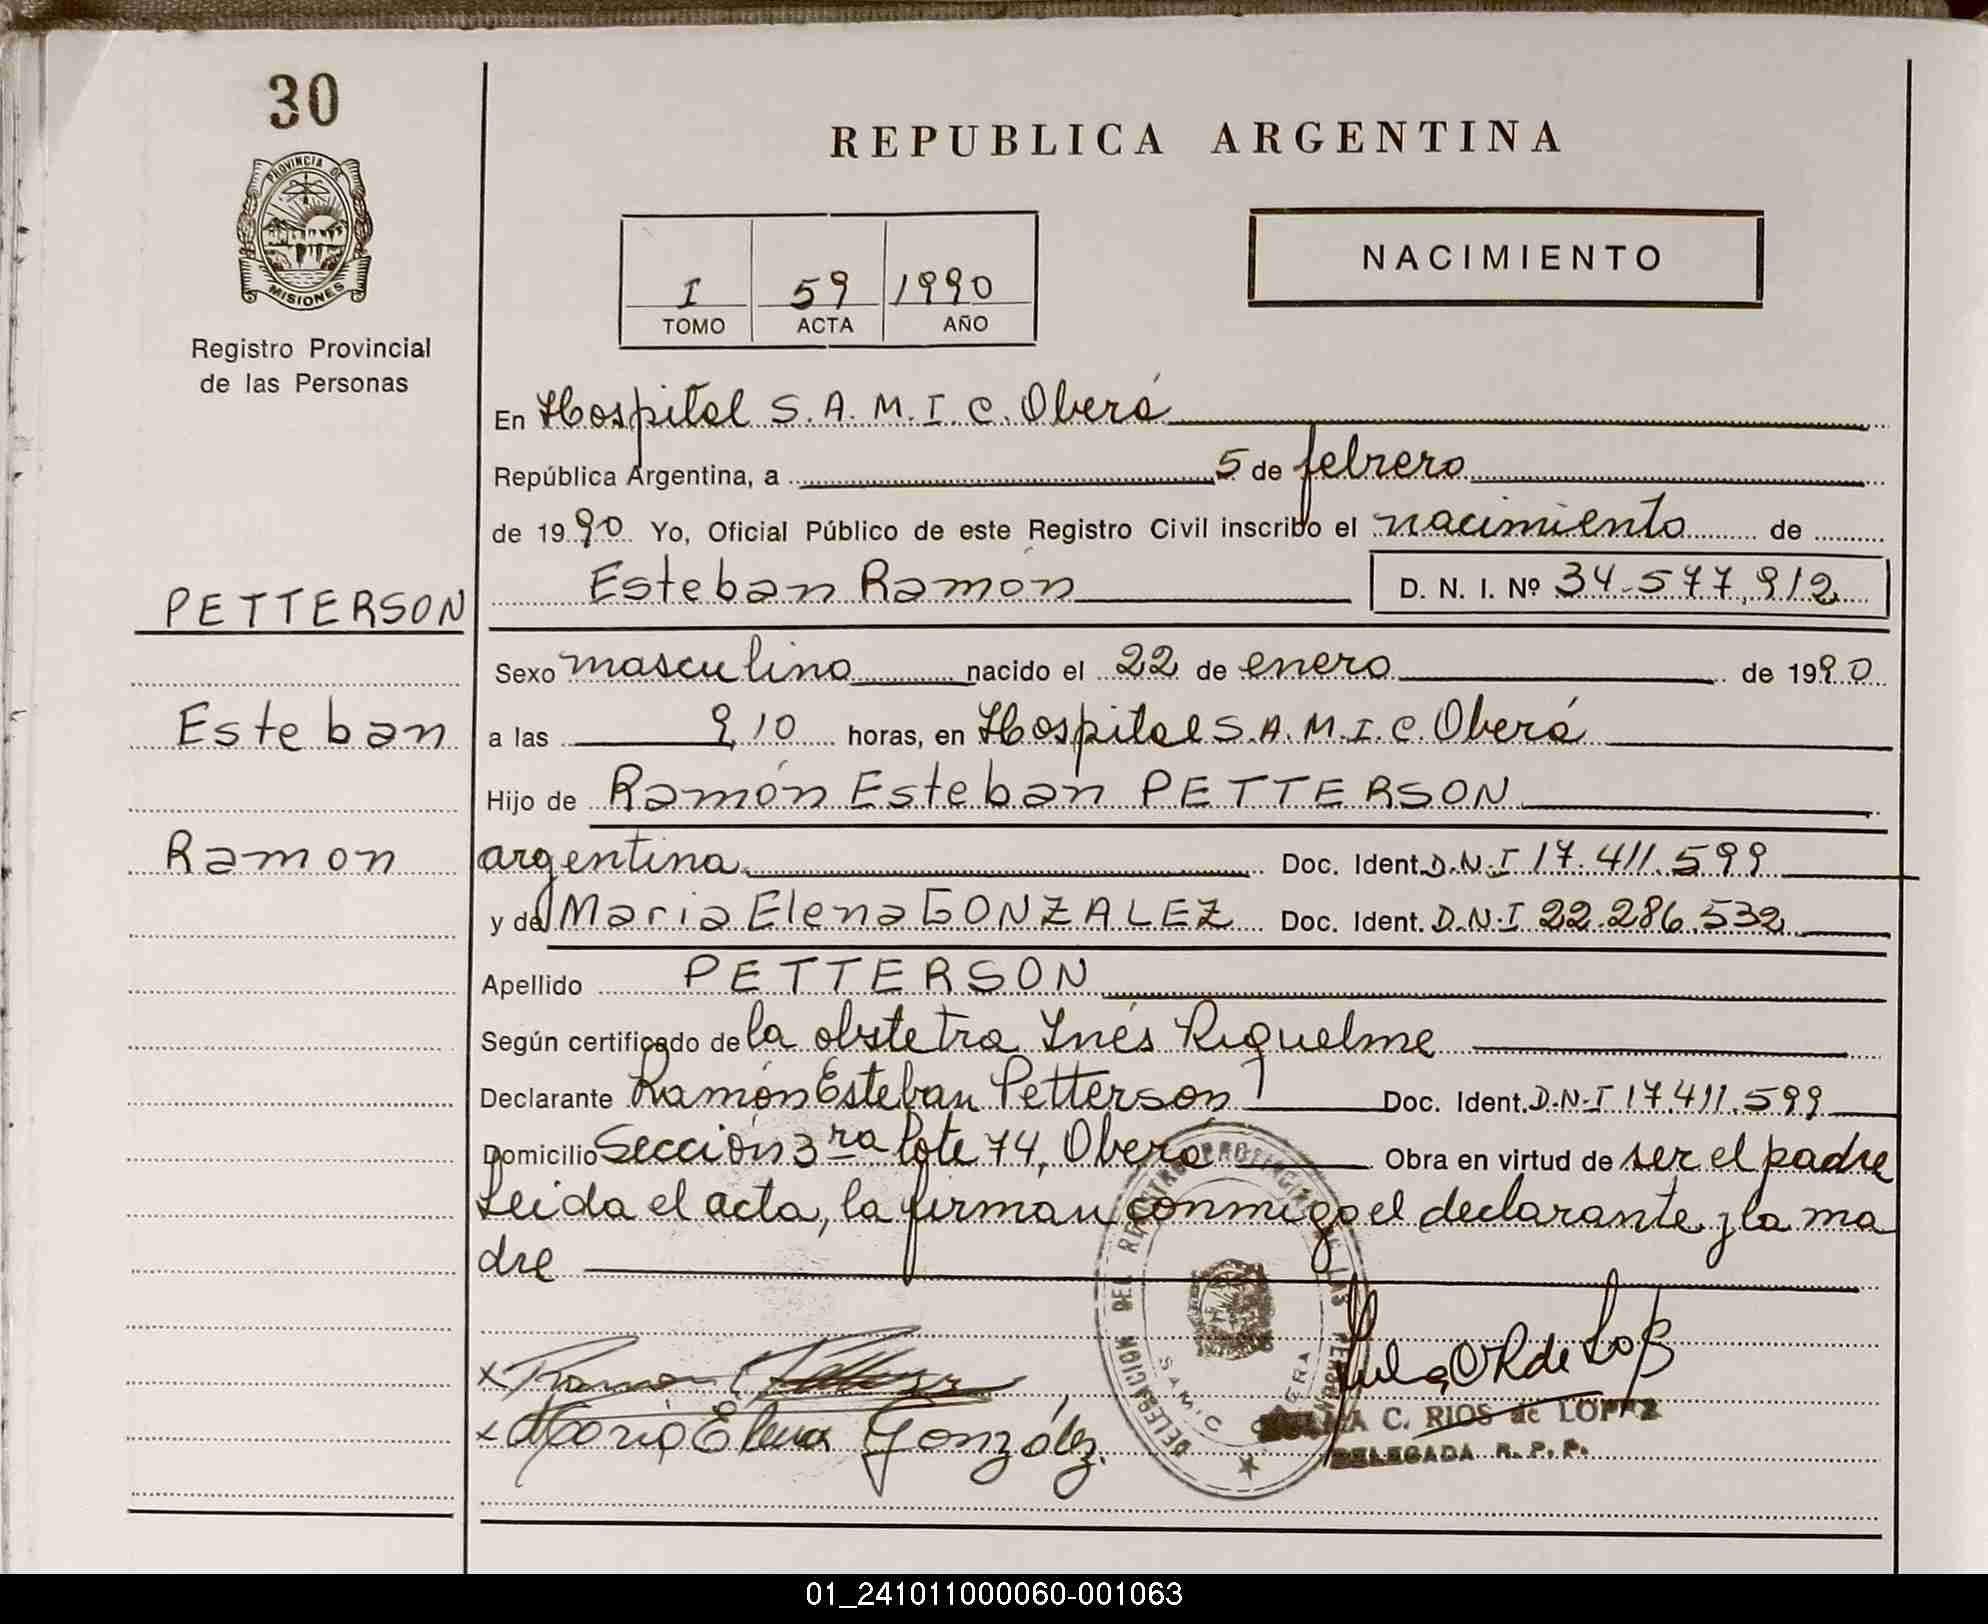 30
PROVINCIA DE
MISIONES
Registro Provincial
de las Personas
PETTERSON
Esteban
Ramon
REPUBLICA ARGENTINA
I 59 1990
TOMO ACTA AÑO
NACIMIENTO
En Hospital S.A.M.I.C. Oberá
República Argentina, a 5 de febrero
de 1990 Yo, Oficial Público de este Registro Civil inscribo el nacimiento de
Esteban Ramón D. N. I. Nº 34.577.912
Sexo masculino nacido el 22 de enero de 1990
a las 9,10 horas, en Hospital S.A.M.I.C. Oberá
Hijo de Ramón Esteban PETTERSON
argentina Doc. Ident. D.N.I 17.411.599
y de Maria Elena GONZALEZ Doc. Ident. D.N.I 22.286.532
Apellido PETTERSON
Según certificado de la obstetra Inés Riquelme
Declarante Ramón Esteban Petterson Doc. Ident. D.N.I 17.411.599
Domicilio Sección 3ra lote 74, Oberá Obra en virtud de ser el padre
Leida el acta, la firman conmigo el declarante y la ma
dre
DELEGACION DEL REGISTRO PROVINCIAL DE LAS PERSONAS
SAMIC OBERA
x Ramon E Petterson
x Maria Elena González.
JULIA C. RIOS de LOPEZ
DELEGADA R. P. P.
01_241011000060-001063